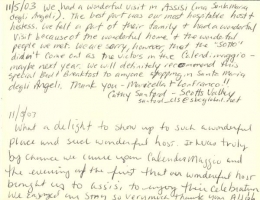 11/5/03 We had a wonderful visit in Assisi (
degli Angeli). The best part was our most hospitable host &
hostess. We felt a part of their family & had a wonderful
visit because of the wonderful home & the wonderful
people we met. We are sorry, however, that the "sotto"
didn't come out as the victors in the Calend.maggio -
maybe next year. We will definitely recommend this
special Bed & Breakfast to anyone stopping in Santa Maria
degli Angeli. Thank you - Marinella & Gianfranco!!
Cathy Sanford - Scotts Valley
11/9/07
What a delight to show up to such a wonderful
place and such wonderful host. It was truly
by chance we came upon Calendimaggio and
the evening of the first that our wonderful host
brought us to Assisi to enjoy this celebration
We enjoyed our stay so very much. Thank you